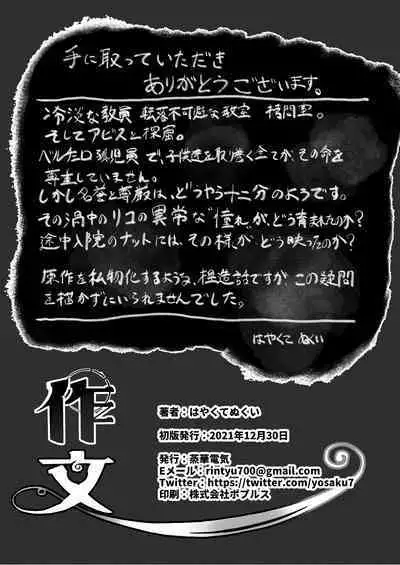 手に取っていただき
ありがとうございます。
冷淡な教員 転落不可避な教室 拷問室。
そしてアビスと探窟。
ベルチェロ孤児院で、子供達を取り巻く全てが、その命を
尊重していません。
しかし名誉と尊厳は、どうやら十二分のようです。
その渦中のリコの異常な"憧れ"が、どう育まれたのか?
途中入院のナットには、その様が、どう映ったのか?
原作を私物化するような、捏造話ですが、この疑問
を描かずにいられませんでした。
はやくて ぬくい
作文
著者:はやくてぬくい
初版発行:2021年12月30日
発行:蒸華電気
Eメール:rintyu700@gmail.com
Twitter:https://twitter.com/yosaku7
印刷:株式会社ポプルス